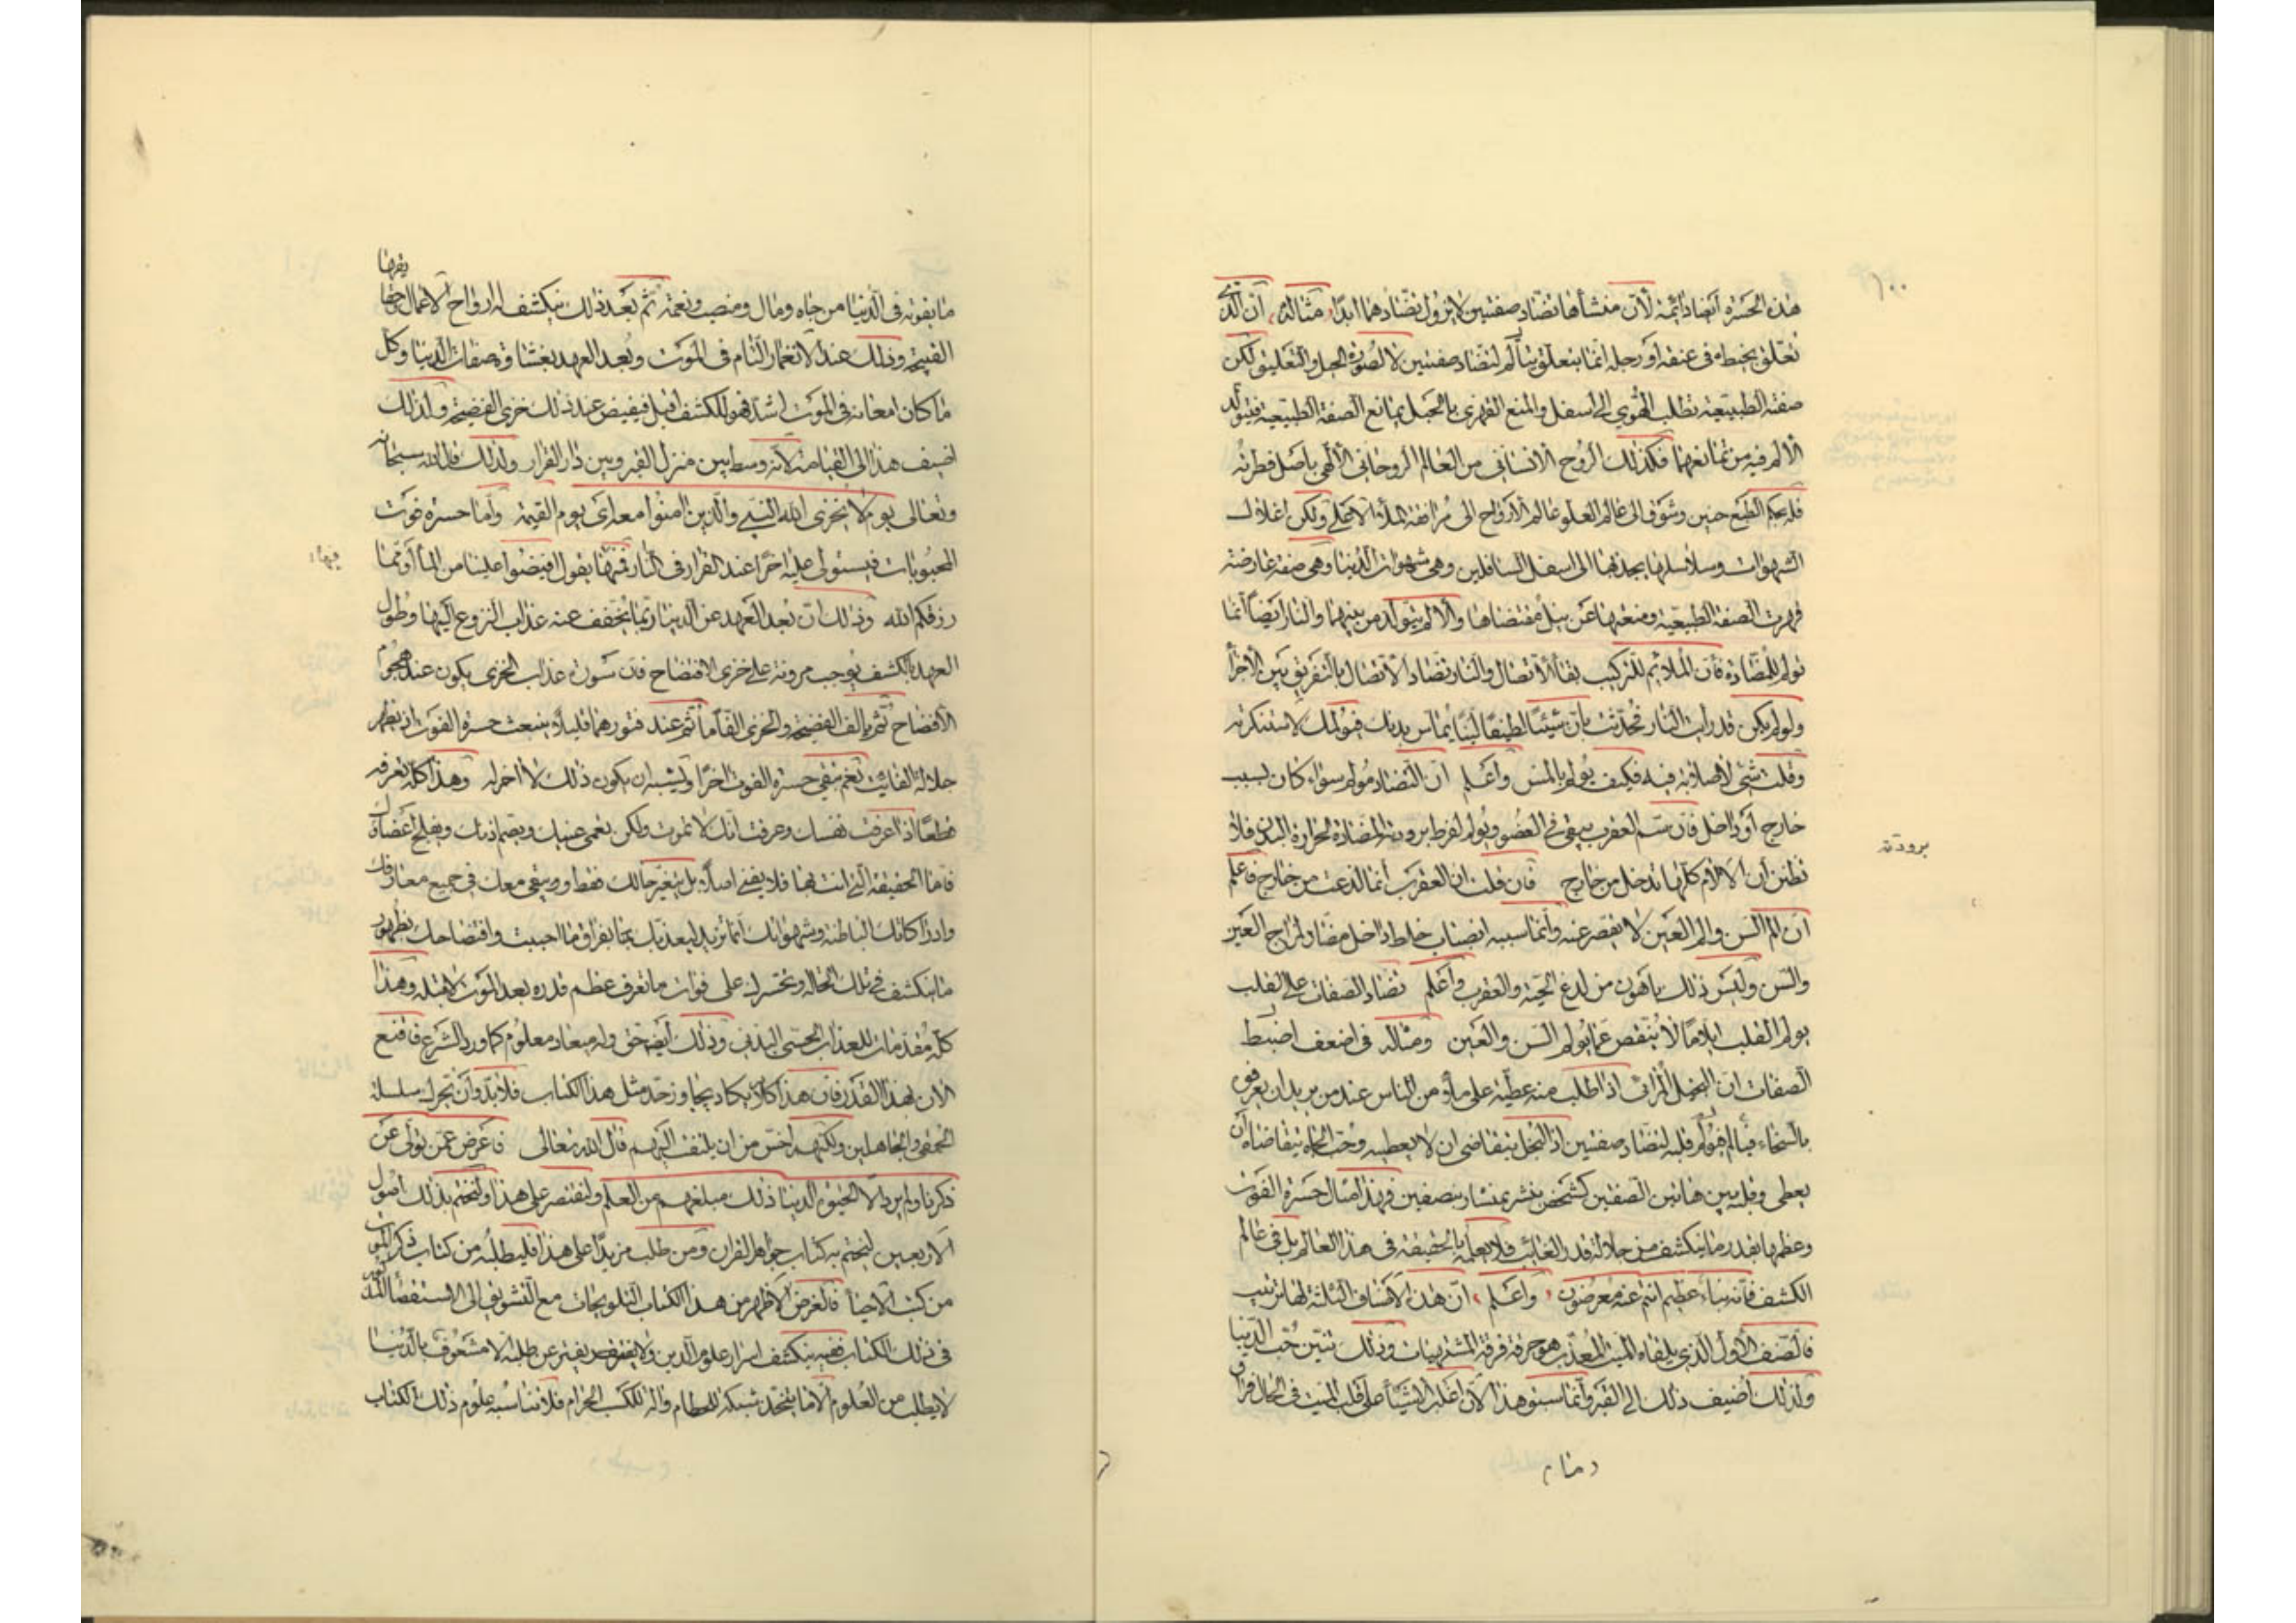 ١٠٠
هذه الحسرة ايضا دائمة لأن منشأها تضاد صفتين لا يزول تضادهما ابدا مثاله ان الذى
تعلق بخيط فى عنقه او رجله انما يتعلق يتألم لتضاد صفتين لا لصورة الحبل والتعليق لكن
صفته الطبيعية تطلب الهوي الى اسفل والمنع القهرى بالحبل يمانع الصفة الطبيعية فيتولد
الألم فيه من تمانعهما فكذلك الروح الانسانى من العالم الروحانى الألهى باصل فطرته
فله بحكم الطبع حنين وشوق الى عالم العلو عالم الأرواح الى مرافقة الملأ الاعلى ولكن اغلال
الشهوات وسلاسلها يجذبها الى اسفل السافلين وهى شهوات الدنيا وهى صفة عارضة
قهرت الصفة الطبيعية ومنعتها عن نيل مقتضاها والألم يتولد من بينهما والنار ايضا انما
تولم للمضادة فأن الملائم للتركيب بقأ الأتصال والنار تضاد الأتصال بالتفريق بين الأجزأ
ولو لم يكن قد رايت النار فحدثت بان شيئا لطيفا لينا يماس بدنك فيولمك لاستنكرته
وقلت شئ لا صلابة فيه فكيف يولم بالمس واعلم ان التضاد مولم سواء كان بسبب
خارج او داخل فان سم العقرب يبقى فى العضو ويولم لفرط برودته المضادة لحرارة البدن فلا
برودته
تظنن ان الالام كلها تدخل من خارج فان قلت ان العقرب انما لدغت من خارج فاعلم
ان الم السن والم العين لا يقصر عنه وانما سببه انصباب خلط داخل مضاد لمزاج العين
والسن وليس ذلك باهون من لدغ الحية والعقرب واعلم تضاد الصفات على القلب
يولم القلب ايلاما لا ينقص عما يولم السن والعين ومثاله فى اضعف
الصفات ان البخيل المرائى اذا طلب منه عطية على ملأ من الناس عند من يريد ان يعرفه
بالسخاء فيألم قلبه لتضاد صفتين اذ البخل يتقاضى ان لا يعطيه وحب الجاه يتقاضاه ان
يعطى وقلبه بين هاتين الصفتين كشخص ينشر بمنشار بنصفين فهذا مثال حسرة الفوت
وعظمها بقدر ما ينكشف من جلالة قدر الفائت فلا يعلمه بالحقيقة فى هذا العالم بل فى عالم
الكشف فأنه نباء عظيم انتم عنه معرضون واعلم ان هذه الأصناف الثلثة لها ترتيب
فالصنف الأول الذى يلقاه الميت المعذب هو حرقة فرقة المشتهيات وذلك تنين حب الدنيا
ولذلك اضيف ذلك الى القبر وانما سبق هذا لأن اغلب الأشيأ على قلب الميت فى الحال فراق
يفرضا
ما يفوته فى الدنيا من جاه ومال ومنصب ونعمة ثم بعد ذلك ينكشف له ارواح الأعمال
القبيحة وذلك عند الانغمار التام فى الموت وبعد العهد بغشاوة صفات الدنيا وكل
ما كان امعانه فى الموت اشد فهو للكشف اقبل فيفيض عند ذلك خزى الفضيحة ولذلك
اضيف هذا الى القيامة لأنه وسط بين منزل القبر وبين دار القرار ولذلك قال الله سبحانه
وتعالى يوم لا يخزى الله النبى والذين امنوا معه اى يوم القيمة واما حسرة فوت
المحبوبات فيستولى عليه اخرا عند القرار فى النار فمنها يقول افيضوا علينا من المأ او مما
فيها
رزقكم الله وذلك ان بعد العهد عن الدنيا ربما يخفف عنه عذاب النزوع اليها وطول
العهد بالكشف يوجب مرونة على خزى الافتضاح فان سورة عذاب الخزى يكون عند هجوم
الأفتضاح ثم يألف الفضيحة والخزى الفا ما ثم عند فتورهما قليلا ينبعث حسرة الفوت اذ يظهر
جلالة الفائت نعم تبقى حسرة الفوت اخرا ويشبه ان يكون ذلك لا اخر له وهذا كله تعرفه
قطعا اذا عرفت نفسك وعرفت انك لا تموت ولكن يعمى عينك ويصم اذنك ويفلج اعضاؤك
فاما الحقيقة التى انت بها فلا يفنى اصلا بل يتغير حالك فقط ويبقى معك فى جميع معارفك
وادراكاتك الباطنة وشهواتك انما تعذيبك بفراق ما احببت وافتضاحك بظهور
ما ينكشف فى تلك الحالة وتحسرك على فوات ما تعرف عظم قدره بعد الموت لا قبله وهذا
كله مقدمات للعذاب الحسى البدنى وذلك ايضا حق وله ميعاد معلوم كما ورد الشرع فاقنع
الآن بهذا القدر فأن هذا كلا يكاد يجاوز حد مثل هذا الكتاب فلا بد وان تحرك سلسلة
الحمقى والجاهلين ولكنهم اخس من ان يلتفت اليهم قال الله تعالى فاعرض عمن تولى عن
ذكرنا ولم يرد الا الحيوة الدنيا ذلك مبلغهم من العلم ولنقتصر على هذا ولنختم بذلك اصول
الاربعين لنختم به كتاب جواهر القران ومن طلب مزيدا على هذا فليطلبه من كتاب ذكر الموت
من كتب الاحيأ فالغرض الأظهر من هذا الكتاب التلويحات مع التشويق الى الاستقصأ
فى ذلك الكتاب ففيه ينكشف اسرار علوم الدين ولا يفتر عن طلبه الا مشعوف بالدنيا
لا يطلب من العلوم الا ما يتخذ شبكة للحطام والة لكسب الحرام فلا تناسبه علوم ذلك الكتاب